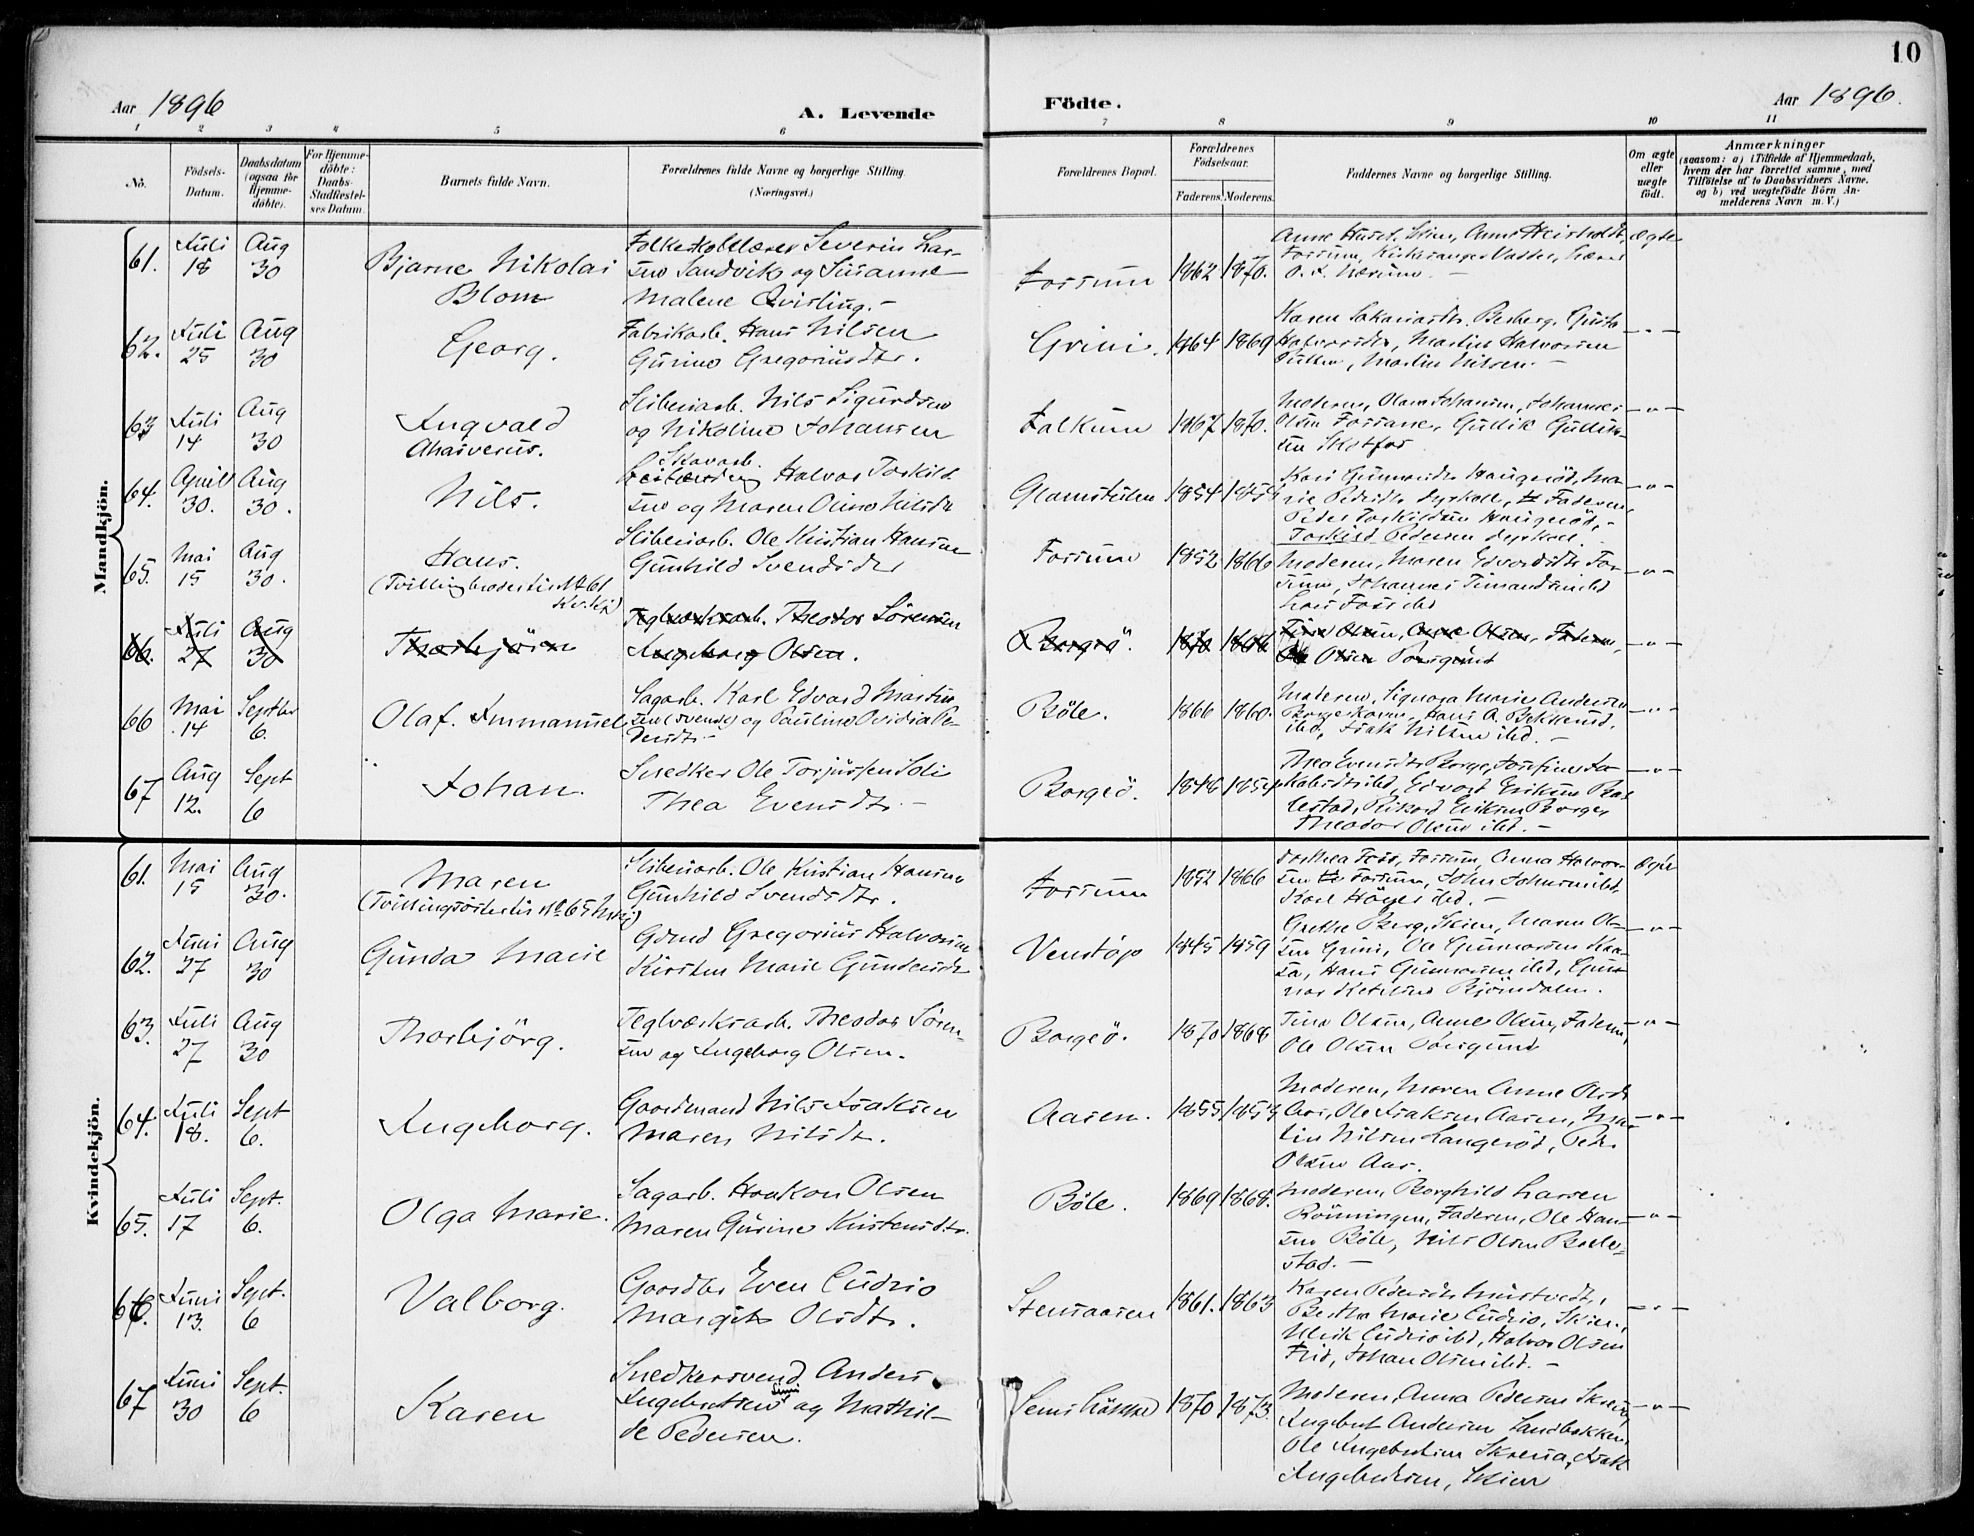 10
Aar 1896
A. Levende
Födte.
Aar 1896.
1 2 3 4 5 6 7 8 9 10 11
No.
Födsels-
Datum.
Daabsdatum
(ogsaa for
Hjemme-
döbte).
For Hjemme-
döbte:
Daabs-
Stadfæstel-
ses Datum.
Barnets fulde Navn.
Forældrenes fulde Navne og borgerlige Stilling.
(Næringsvei.)
Forældrenes Bopæl.
Forældrenes
Födselsaar.
Faderens. Moderens.
Faddernes Navne og borgerlige Stilling.
Om ægte
eller
uægte
födt.
Anmærkninger
(saasom: a) i Tilfælde af Hjemmedaab,
hvem der har forrettet samme, med
Tilföielse af to Daabsvidners Navne.
og b) ved uægtefödte Börn An-
melderens Navn m. V.)
Mandkjön.
61.
Juli
18
Aug
30
Bjarne Nikolai
Blom
Folkeskolelærer Severin Lar-
sen Sandvik og Susanne
Malene Qvisling.-
Fossum
1862 1870.
ægte
62.
Juli
25
Aug
30
Georg.
Fabrikarb. Hans Nilsen
Gurine Gregoriusdtr.
Grini.
1864 1869
Halvorsdtr, Martin Halvorsen
Martin Nilsen.-
-"-
63
Juli
14
Aug
30
Ingvald
Ahasverus.
Sliberiarb. Nils Sigurdsen
og Nikoline Johansen
Falkum
1867 1870.
Moderen, Olava Johansen, Johannes
Olsen Fossane, Gullik Gullik-
sen Skotfos
-"-
64.
April
30.
Aug
30.
Nils.
Skovarb.
Halvor Torkild-
sen og Maren Oline Nilsdtr
Glamstulen
1854 1854
Kari Gunnarsdtr Haugerød, Ma-
Faderen,
Peder Torkildsen Haugerød,-
Torkild Pedersen
-"-
65.
Mai
15
Aug
30.
Hans.
(Tvillingbroder til No 61
Kv.Kj)
Sliberiarb. Ole Kristian Hansen
Gunhild Svendsdtr
Fossum
1852 1866
Moderen, Maren Edvardsdtr Fos-
sum, Johannes ibd
Lars Foss ibd
-"-
66.
Juli
27
Aug
30
Thorbjörn
Teglværksarb. Theodor Sörensen
Ingeborg Olsen.
Borgeö.
1870 1868
Tina Olsen, Anne Olsen, Faderen,
Ole Olsen Porsgrund
-"-
66
Mai
14
Septbr
6.
Olaf. Immanuel
Sagarb. Karl Edvard Martin-
sen (svensk) og Pauline Ovidia Pe-
dersdtr.-
Böle.
1866 1860.
Moderen, Signora Marie Andersen
ibd, Isak Nilsen ibd.-
-"-
67
Aug
12.
Sept
6
Johan.
Snedker Ole Torjussen Soli
Thea Evensdtr.-
Borgeö.
1848 1854
Thea Evensdtr Borge, Josefine Ja-
kobsdtr ibd, Edvard Eriksen Bal-
lestad, Rikard Eriksen Borge,
Theodor Olsen ibd.-
-"-
Kvindekjön.
61.
Mai
15
Aug
30.
Maren
(Tvillingsöster til No 65 Mkj)
Sliberiarb. Ole Kristian Hansen
Gunhild Svendsdtr.
Fossum
1852 1866
Dorthea Foss, Fossum, Anna Halvor-
sen Fossum, John Johnsen ibd,
Karl Höyer ibd.-
ægte
62.
Juni
27
Aug
30
Gunda Marie
Gdmd Gregorius Halvorsen
Kirsten Marie Gundersdtr
Venstöp
1845 1859
Grethe Berg, Skien, Maren Ol-
sen Grini, Ole Gunnarsen Kaa-
sa, Hans Gunnarsen ibd, Gun-
nar Ketilsen Björndalen.
-"-
63.
Juli
27
Aug
30
Thorbjörg.
Teglværksarb. Theodor Sören-
sen og Ingeborg Olsen.
Borgeö.
1870 1868
Tina Olsen, Anne Olsen, Faderen,
Ole Olsen Porsgrund
-"-
64.
Juli
18.
Sept
6.
Ingeborg.
Gaardmand Nils Isaksen
Maren Nilsdtr.
Aasen.
1855 1853
Moderen, Maren Anne Olsdtr
Aas, Ole Isaksen Aasen, Mar-
tin Nilsen Langerød, Peder
Olsen Aas.
-"-
65.
Juli
17
Sept.
6.
Olga Marie.
Sagarb. Haakon Olsen
Maren Gurine Kristensdtr.
Böle.
1869 1868.
Moderen, Borghild Larsen
Rönningen, Faderen, Ole Han-
sen Böle, Nils Olsen Balle-
stad.-
-"-
66.
Juni
13.
Sept.
6
Valborg.
Gaardbr Even Cudrio
Margit Olsdtr.
Stensaasen
1861. 1863
Karen Pedersdtr
Bertha Marie Cudrio, Skien,
Ulrik Cudrio ibd, Halvor Olsen
Johan Olsen ibd.-
-"-
67
Juni
30
Sept.
6
Karen
Snedkersvend Anders
Ingebretsen og Mathil-
de Pedersen.
1870 1873.
Moderen, Anna Pedersen
Ingebret Andersen Sandbakken,
Ole Ingebretsen Isak
Ingebretsen, Skien
-"-